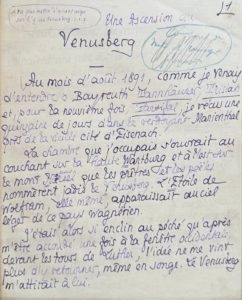 Une Ascension au
Venusberg
Au mois d'août 1891, comme je venais
d'entendre à Bayreuth Tannhäuser, Tristan
et, pour la neuvième fois, Parsifal, je vécus une
quinzaine de jours dans le verdoyant Marienthal
près de la vieille cité d'Eisenach.
La chambre que j'occupais s'ouvrait au
couchant sur la Wartburg et à l'est sur
le mont Hœrsel que les prêtres et les poètes
nommèrent jadis le Venusberg. L'Étoile de
Wolfram, elle-même, apparaissait au ciel
léger de ce pays Wagnérien.
J'étais alors si enclin au péché qu'après
m'être accoudé une fois à la fenêtre occidentale,
devant les tours de Luther, l'idée ne me vint
plus d'y retourner, même en songe. Le Venusberg
m'attirait à lui.